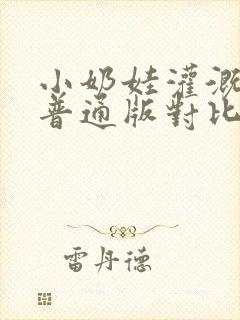 小奶娃灌溉
普通版對比
雷丹德